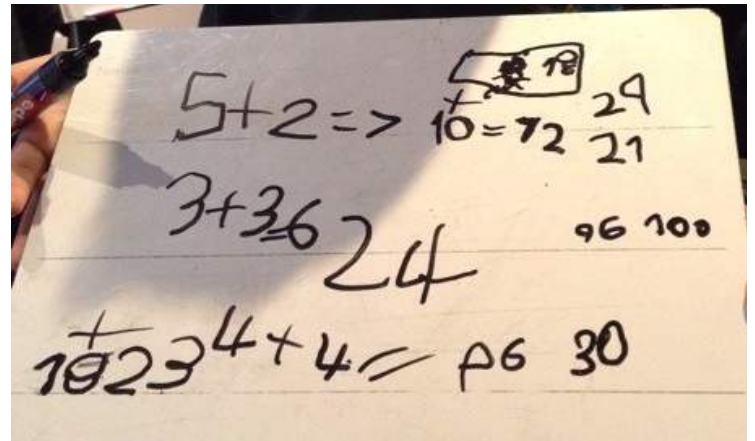 18
5+2=> 10=72 24
21
3+3=6 24 96 100
1823 4+4= p6 30